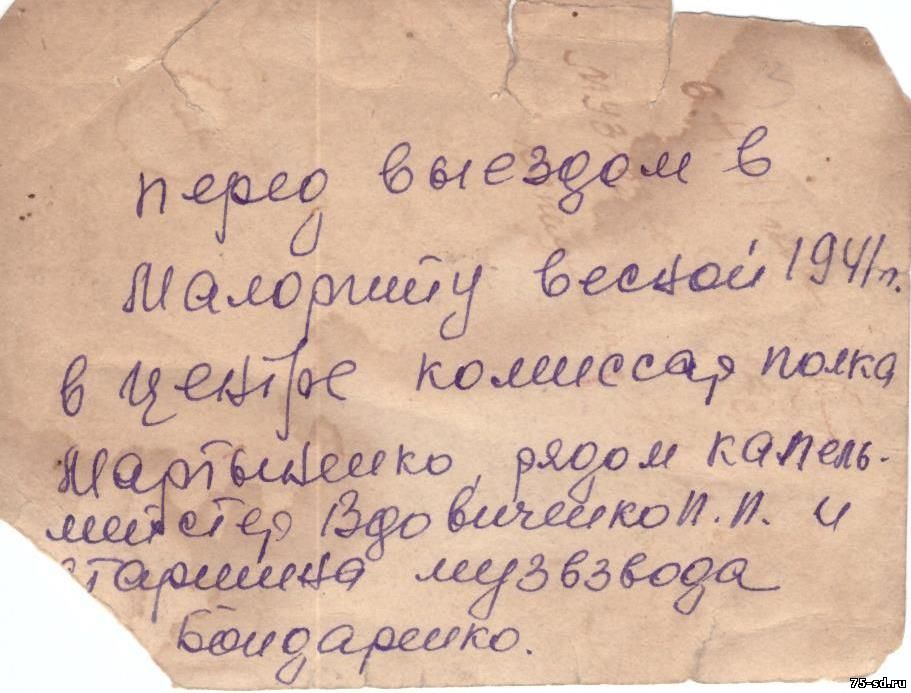 перед выездом в
Малориту весной 1941 г.
в центре комиссар полка
Мартыненко, рядом капель-
мейстер Вдовиченко П.П. и
старшина музвзвода
Бондаренко.
75-sd.ru